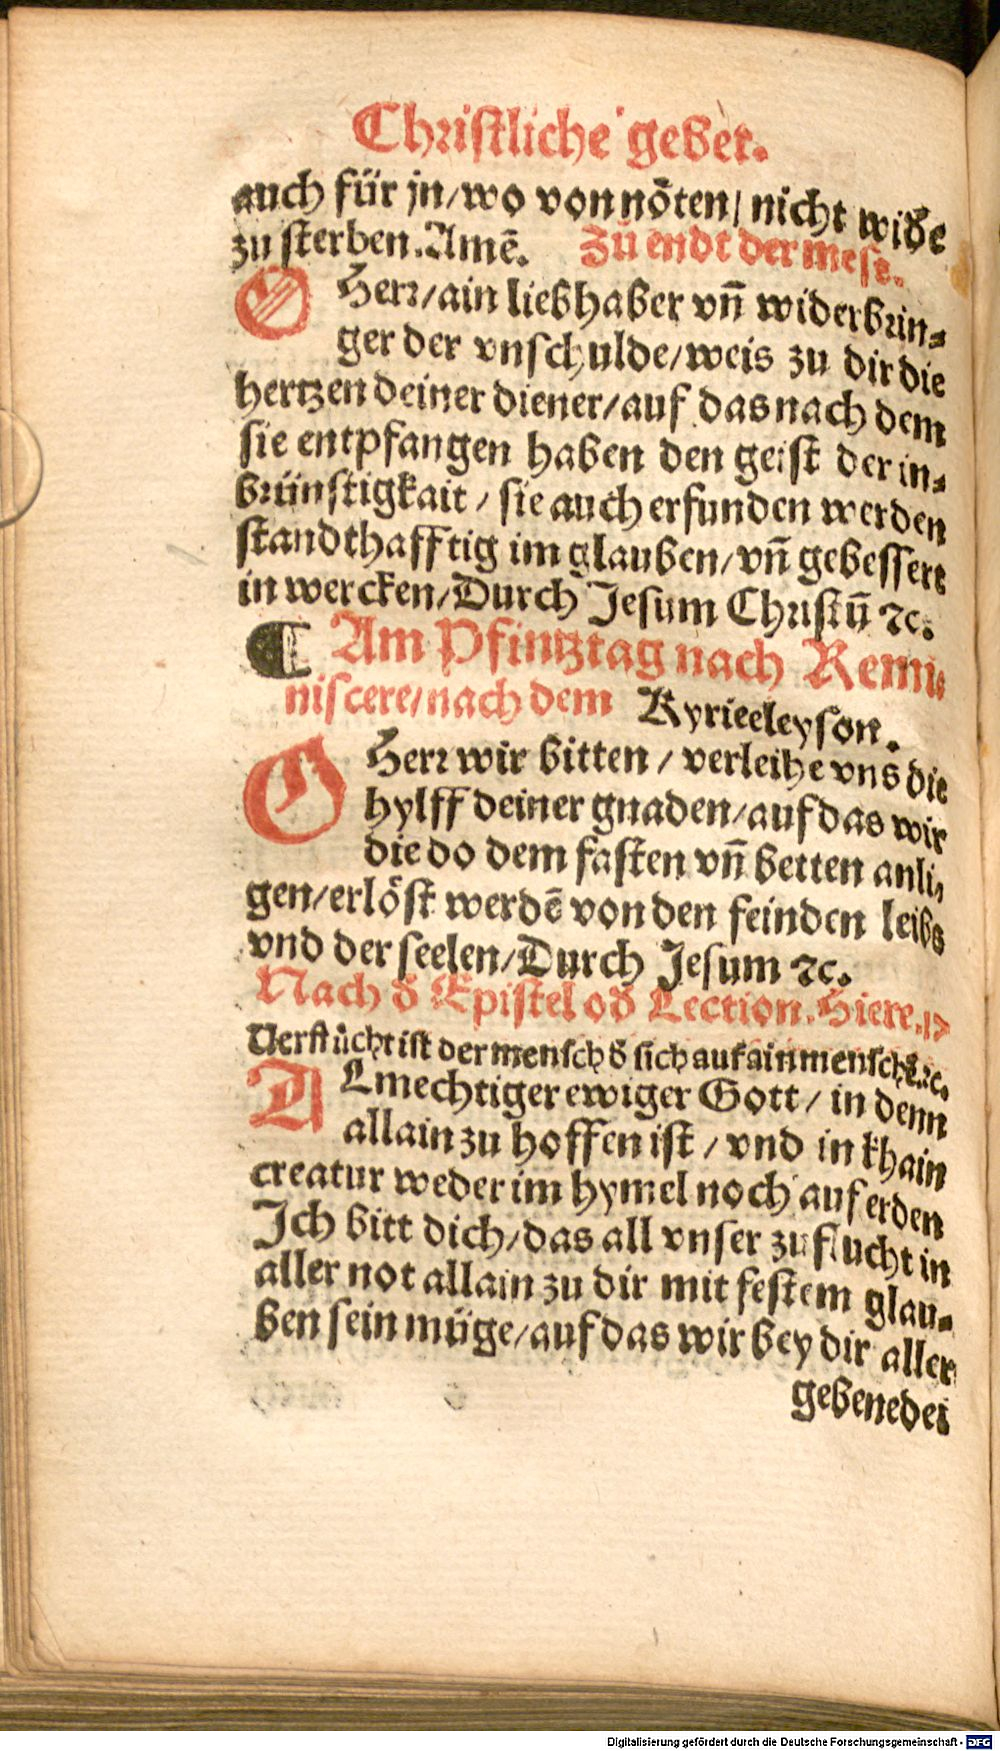 Christliche gebet.
auch für jn/wo von nöten/ nicht widē
zu sterben. Amē. Zů endt der mess.
O Herr/ain liebhaber vñ widerbrin⸗
ger der vnschulde/weis zu dir die
hertzen deiner diener/auf das nach dem
sie entpfangen haben den geist der in⸗
brünstigkait / sie auch erfunden werden
standthafftig im glauben/vñ gebessert
in wercken/Durch Jesum Christū ⁊c.
¶ Am Pfintztag nach Remi⸗
niscere/nach dem Kyrieeleyson.
O Herr wir bitten / verleihe vns die
hylff deiner gnaden/auf das wir
die do dem fasten vñ betten anli⸗
gen/erlöst werdē von den feinden leibs
vnd der seelen/Durch Jesum ⁊c.
Nach d̄ Epistel od̄ Lection. Hiere. 17
Verflůcht ist der mensch d̄ sich auf ain mensch ⁊c.
ALmechtiger ewiger Gott / in denn
allain zu hoffen ist / vnd in khain
creatur weder im hymel noch auf erden
Ich bitt dich/das all vnser zuflucht in
aller not allain zu dir mit festem glau⸗
ben sein müge/auf das wir bey dir aller
gebenedei
Digitalisierung gefördert durch die Deutsche Forschungsgemeinschaft - DFG